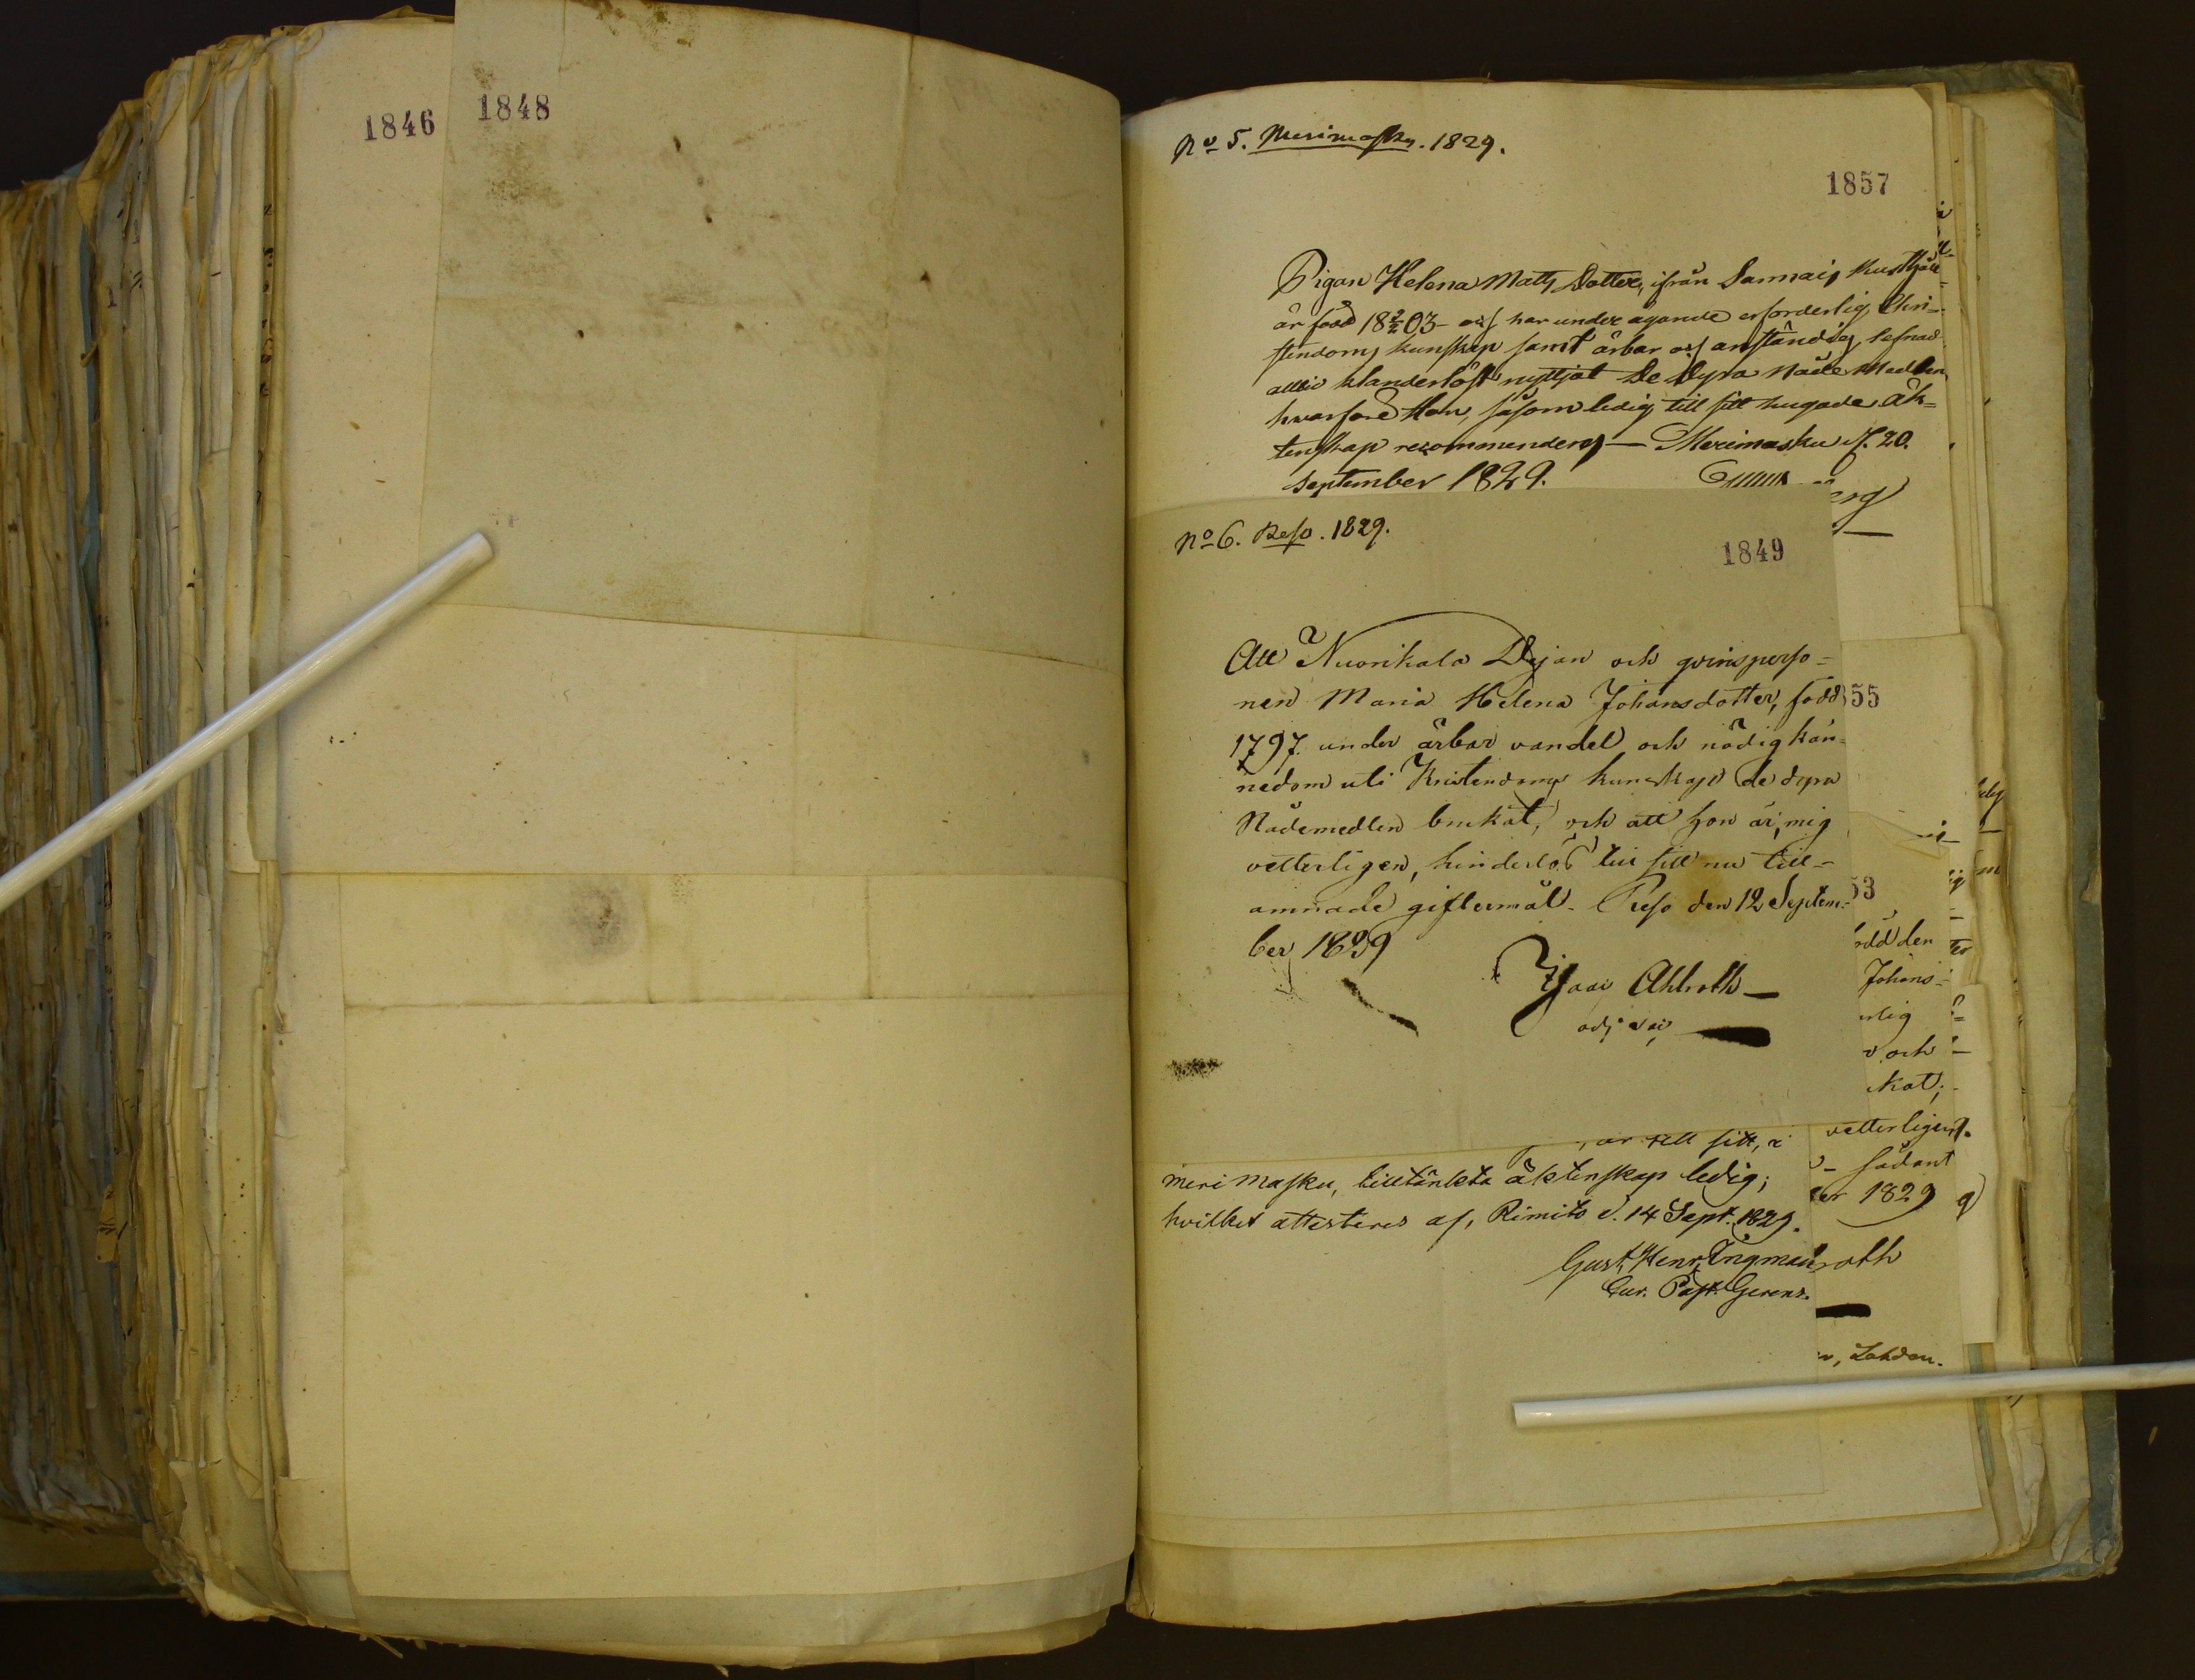 1846
1848
No 5. Merimasku. 1829.
1857
Pigan Helena Matts Dotter, ifrån Sarmais
är född 18 2/2 03 och har under ägande erforderlig Chri=
stendoms kunskap samt ärbar och anständig lefnad
alltid klanderlöst nyttjat De Dyra Nåde Medlen
hvarföre Hon, såsom ledig till sitt hugade äk=
tenskap recommenderas — Merimasku d. 20.
September 1829.
No 6. Reso. 1829.
1849
Att Nuorikala Pigan och qvinsperso=
nen Maria Helena Johansdotter, född
1797. under ärbar vandel och nödig kän=
nedom uti Kristendoms kunskap de dyra
Nådemedlen brukat, och att hon är, mig
vetterligen, hinderlös till sitt nu till=
ämnade giftermål. Reso den 12 Septem=
ber 1829
Isaac Ahlroth
adj
55
53
ödd den
Johans=
rlig
och
kat,
vetterligen
sådant
er 1829
roth
Lahden.
är till sitt, i
meri Masku, tilltänkta äktenskap ledig;
hvilket attesteras af, Rimito d. 14 Sept. 1829.
Gust. Henr. Ungman
Cur. Past. Gerens.